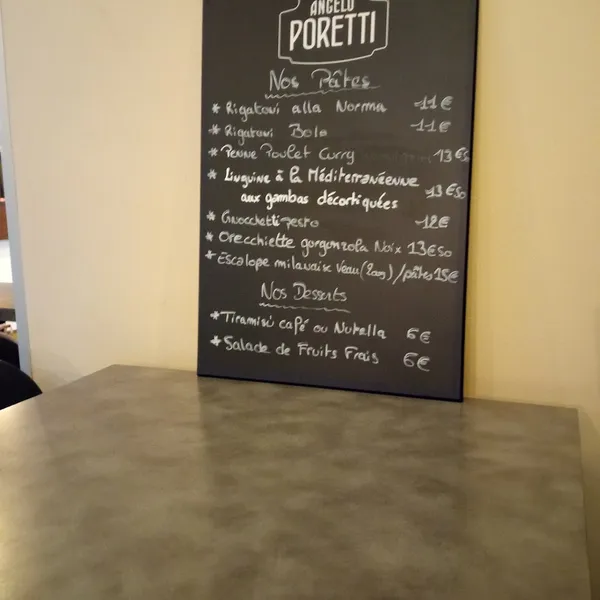 ANGELO
PORETTI
Nos Pâtes
* Rigatoni alla Norma 11€
* Rigatoni Bolo 11€
* Penne Poulet Curry 13€50
* Linguine à la Méditerranéenne
aux gambas décortiquées 13€50
* Gnocchetti pesto 12€
* Orecchiette gorgonzola Noix 13€50
* Escalope milanaise Veau / pâtes 15€
Nos Desserts
* Tiramisù café ou Nutella 6€
* Salade de Fruits Frais 6€